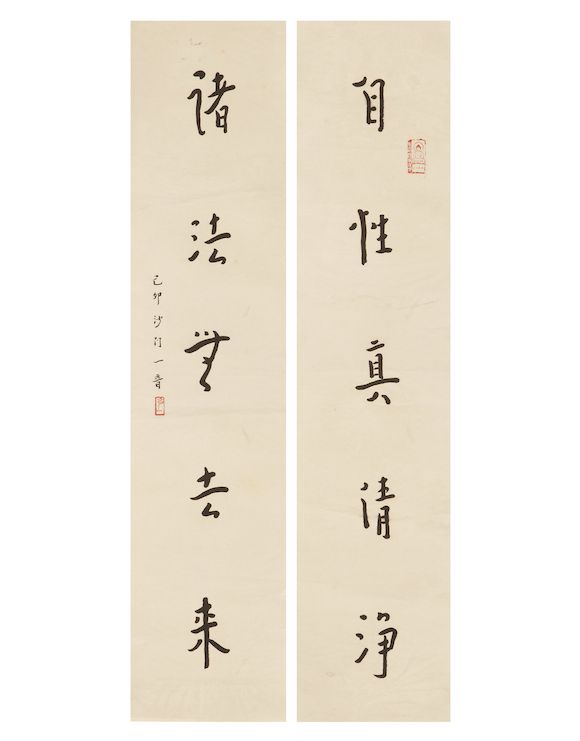 自性真清淨
諸法無去来
己卯沙門一音